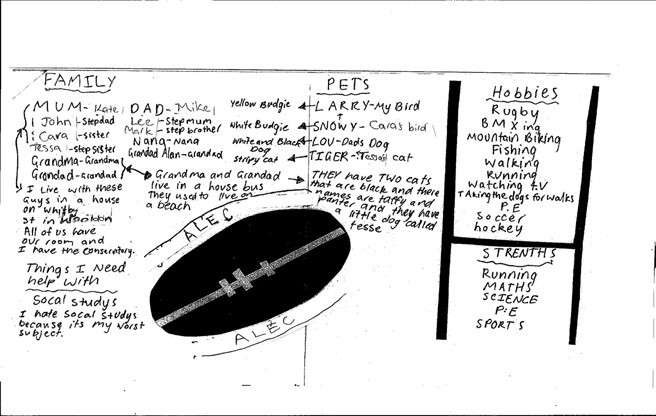 FAMILY
MUM-Kate
John-Stepdad
Cara-sister
Tessa-step sister
Grandma-Grandma
Grandad-grandad
I live with these
Guys in a house
on Whitby
st in
All of us have
our room and
I have the conservatory.
Things I Need
help with
Socal studys
I hate Socal studys
because its my worst
subject.
DAD-Mike
Lee-Stepmum
Mark-step brother
Nana-nana
Grandad Alan-grandad
Grandma and Grandad
live in a house bus
They used to live on
a beach
ALEC
ALEC
PETS
Yellow Budgie LARRY-My Bird
White Budgie SNOWY-Cara's bird
White and Black Dog LOU-Dads Dog
stripy cat TIGER-Tessa's cat
THEY have TWO cats
that are black and there
names are taffy and
panter and they have
a little dog called
tesse
Hobbies
Rugby
BMXing
Mountain Biking
Fishing
Walking
Running
Watching t.v
Taking the dogs for walks
P.E
Soccer
hockey
STRENTHS
Running
MATHS
SCIENCE
P.E
SPORTS